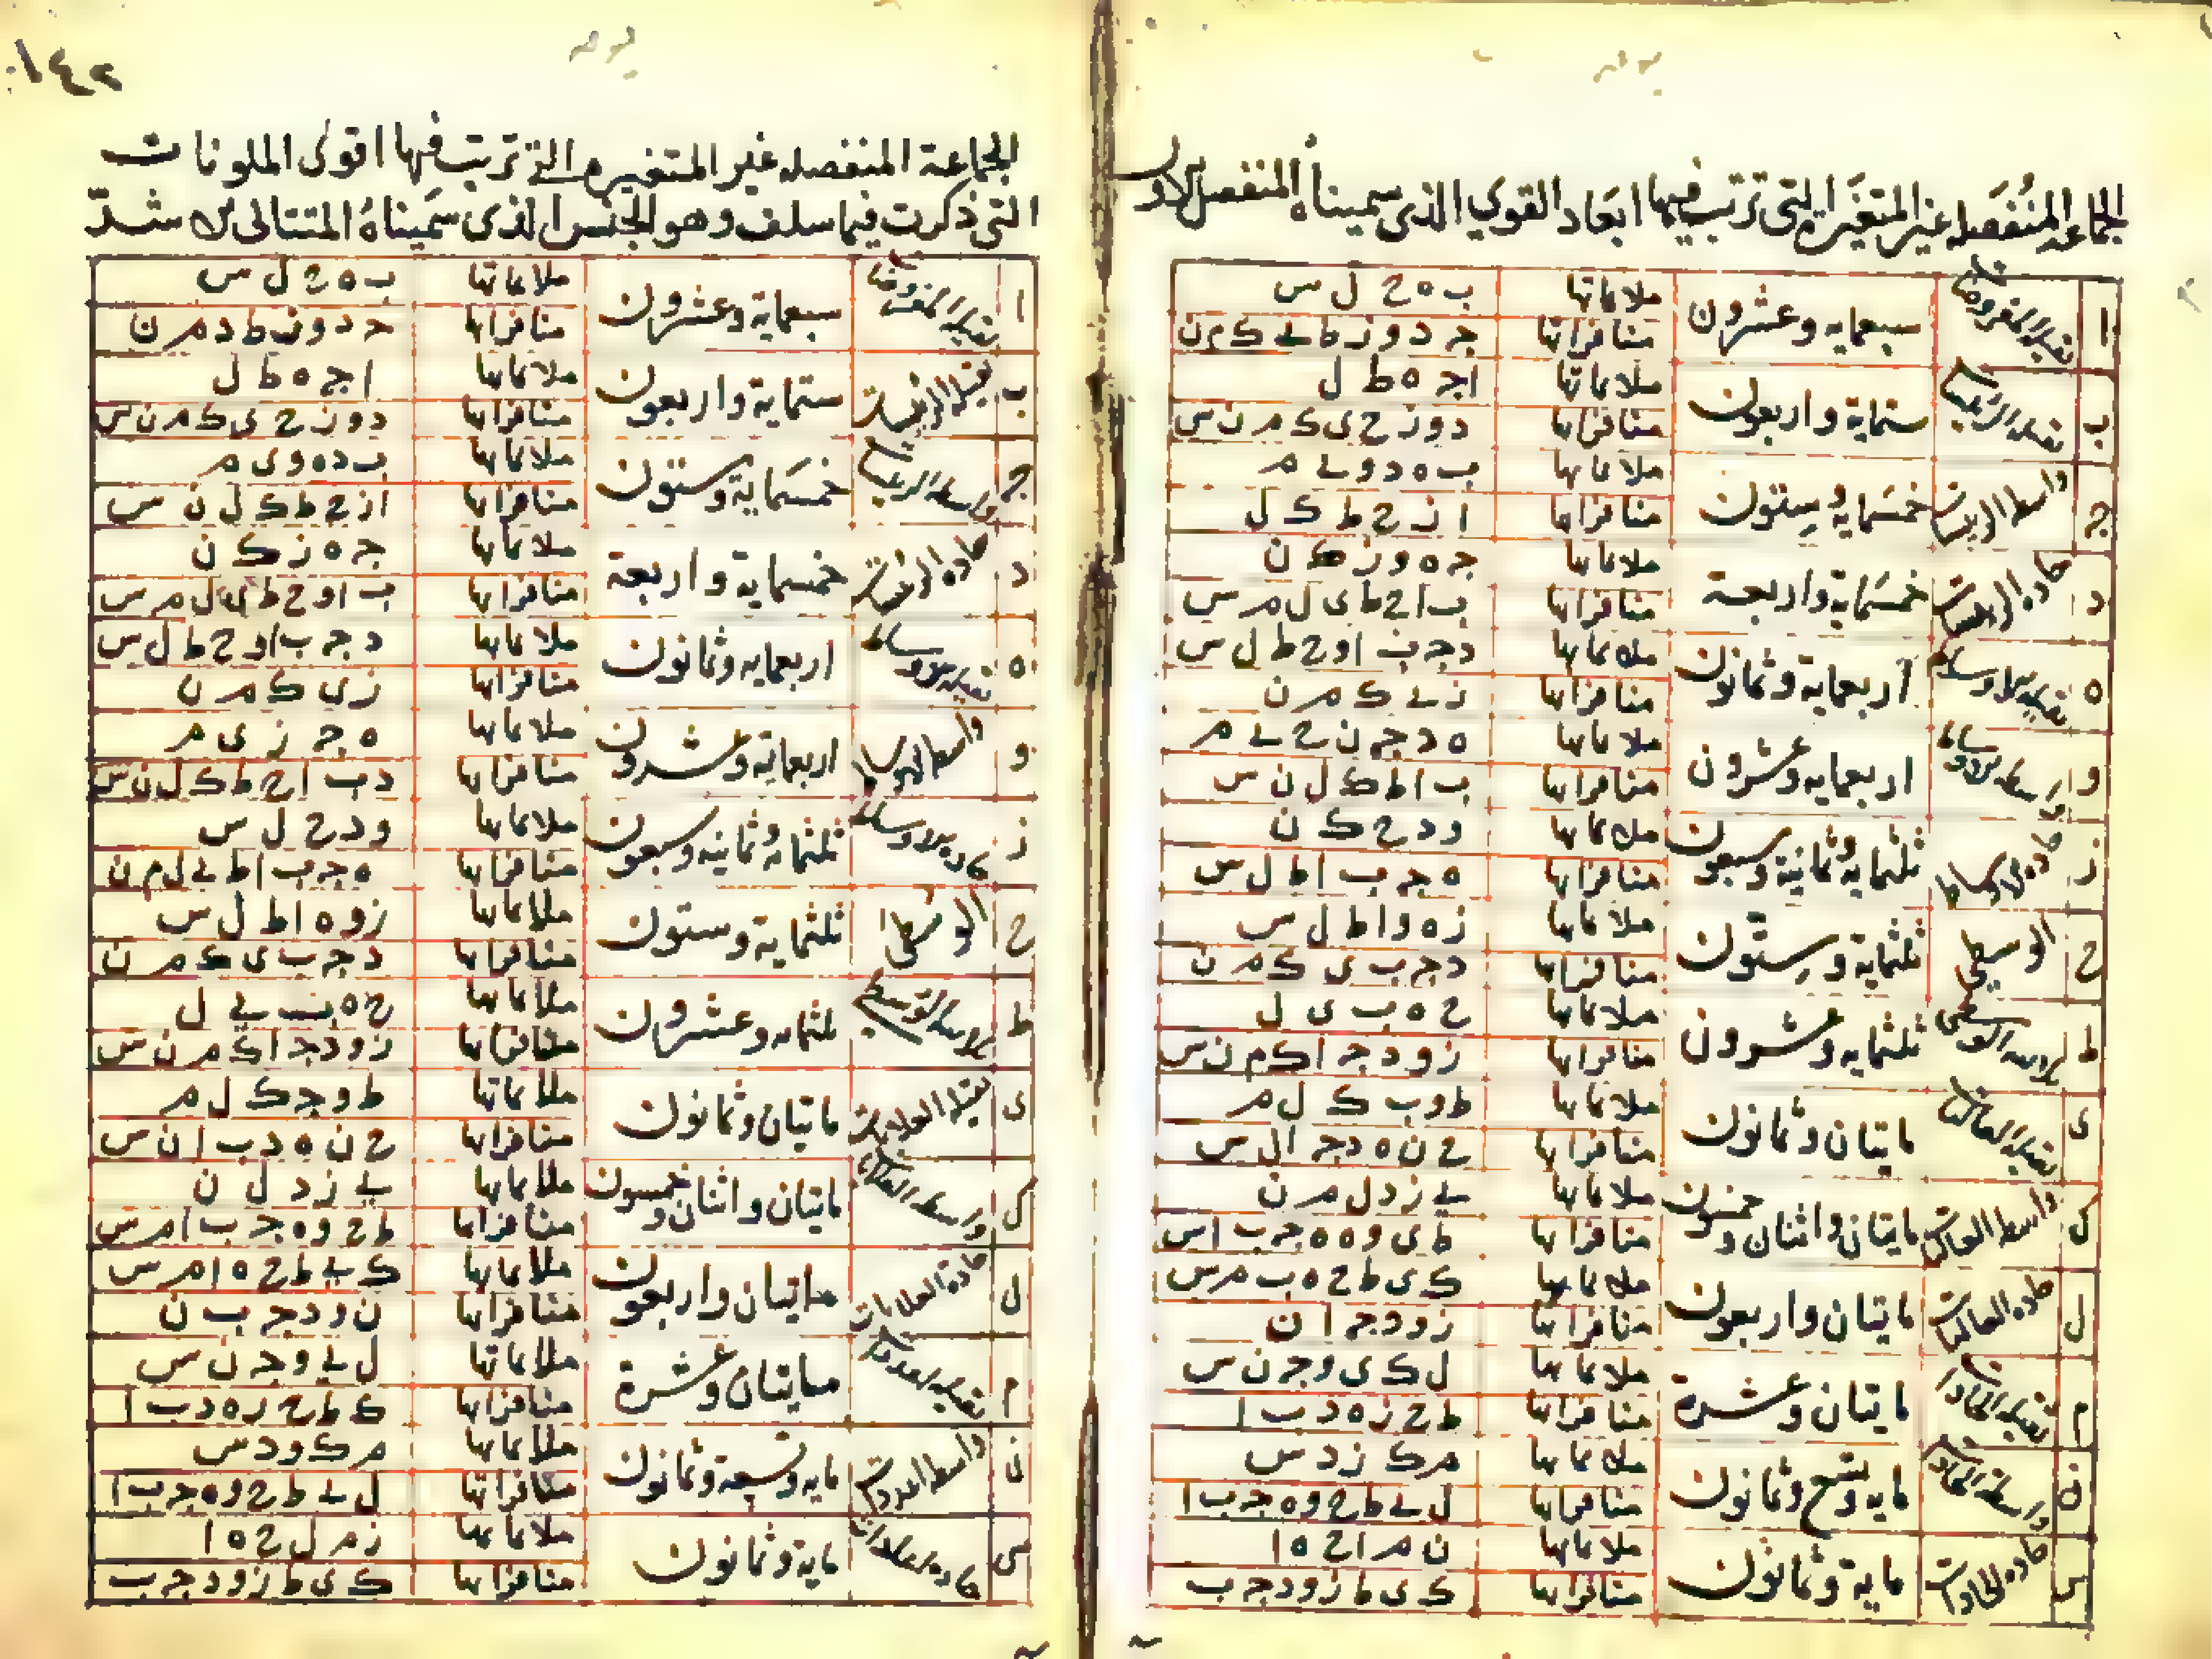 الجماعة المنفصله غير المتغيرة التى ترتب فيها ابعاد القوي الذى سميناه المنفصل الاول
ا ثقيلة المفروضات سبعمايه وعشرون ملاىماتها ب ه ح ل س
منافراتها ج د و ز ط ى ك م ن
ب ستماية واربعون ملاىماتها ا ج ه ط ل
منافراتها د و ز ح ى ك م ن س
ج خمسمايه وستون ملاىماتها ب ه د و ى م
منافراتها ا ز ح ط ك ل
د خمسماية واربعة ملاىماتها ج ه و ز ك ن
منافراتها ب ا ح ط ى ل م س
ه ثقيلة الاوساط اربعماية وثمانون ملاىماتها د ج ب ا و ح ط ل س
منافراتها ز ى ك م ن
و واسطة الاوساط اربعمايه وعشرون ملاىماتها ه د ج ز ح ى م
منافراتها ب ا ط ك ل ن س
ز حادة الاوساط ثلثمايه وثمانية وسبعون ملاىماتها و د ح ك ن
منافراتها ه ج ب ا ط ل س
ح الوسطى ثلثماية وستون ملاىماتها ز ه و ا ط ل س
منافراتها د ج ب ى ك م ن
ط ثلثمايه وعشرون ملاىماتها ح ه ب ى ل
منافراتها ز و د ج ا ك م ن س
ى مايتان وثمانون ملاىماتها ط و ب ك ل م
منافراتها ح ن ه د ج ا ل س
ك مايتان واثنان وخمسون ملاىماتها ى ز د ل م ن
منافراتها ط ى و ه ه ج ب ا س
ل مايتان واربعون ملاىماتها ك ى ط ح ه ب م س
منافراتها ز و د ج ا ن
م ثقيلة الحادات مايتان وعشرة ملاىماتها ل ك ى و ج ن س
منافراتها ط ح ز ه د ب ا
ن واسطة الحادات مايه وتسع وثمانون ملاىماتها م ك ز د س
منافراتها ل ى ط ح و ه ج ب ا
س حادة الحادات ماية وثمانون ملاىماتها ن م ا ح ه ا
منافراتها ك ى ط ز و د ج ب
١٤٢
الجماعة المنفصله غير المتغيره التى ترتب فيها اقوى الملونات
التى ذكرت فيما سلف وهو الجنس الذى سميناه المتتالى الاشد
ا ثقيلة المفروضات سبعماية وعشرون ملاىماتها ب ه ح ل س
منافراتها ج د و ز ط د م ن
ب ستماية واربعون ملاىماتها ا ج ه ط ل
منافراتها د و ز ح ى ك م ن س
ج خمسماية وستون ملاىماتها ب د ه و ى م
منافراتها ا ز ح ط ك ل ن س
د خمسماية واربعة ملاىماتها ج ه ز ك ن
منافراتها ب ا و ح ط ى ل م س
ه ثقيلة الاوساط اربعمايه وثمانون ملاىماتها د ج ب ا و ح ط ل س
منافراتها ز ى ك م ن
و واسطة الاوساط اربعماية وعشرون ملاىماتها ه ج ز ى م
منافراتها د ب ا ح ط ك ل ن س
ز حادة الاوساط ثلثمايه وثمانيه وسبعون ملاىماتها و د ح ل س
منافراتها ه ج ب ا ط ى ل م ن
ح الوسطى ثلثماية وستون ملاىماتها ز و ه ا ط ل س
منافراتها د ج ب ى ك م ن
ط ثلثمايه وعشرون ملاىماتها ح ه ب ى ل
منافراتها ز و د ج ا ك م ن س
ى مايتان وثمانون ملاىماتها ط و ج ك ل م
منافراتها ح ن ه د ب ا ن س
ك مايتان واثنان وخمسون ملاىماتها ى ز د ل ن
منافراتها ط ح و ه ج ب ا م س
ل مايتان واربعون ملاىماتها ك ى ط ح ه ا م س
منافراتها ن و د ج ب ن
م مايتان وعشرة ملاىماتها ل ى و ج ن س
منافراتها ك ط ح ز ه د ب ا
ن مايه وتسعة وثمانون ملاىماتها م ك و د س
منافراتها ل ى ط ح و ه ج ب ا
س ماية وثمانون ملاىماتها ز م ل ح ه ا
منافراتها ك ى ط ز و د ج ب